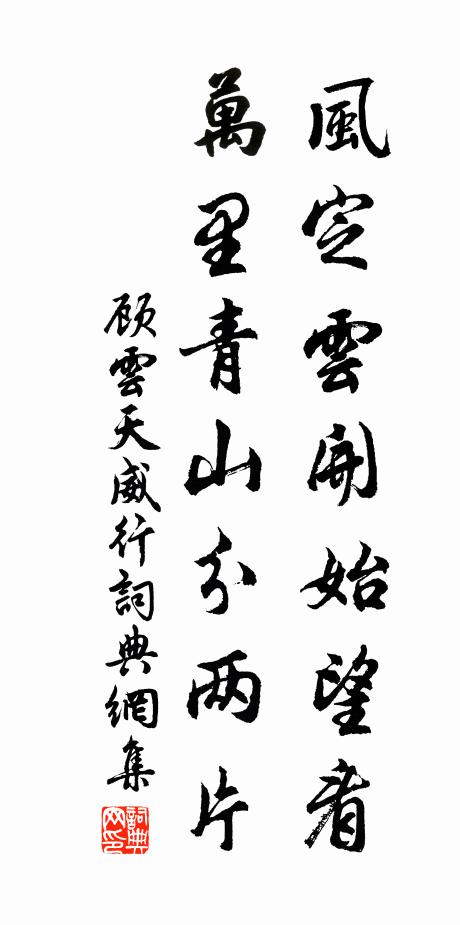 風定雲開始望看
萬里青山分两片
顾雲天威行詞典網集
詞典网印